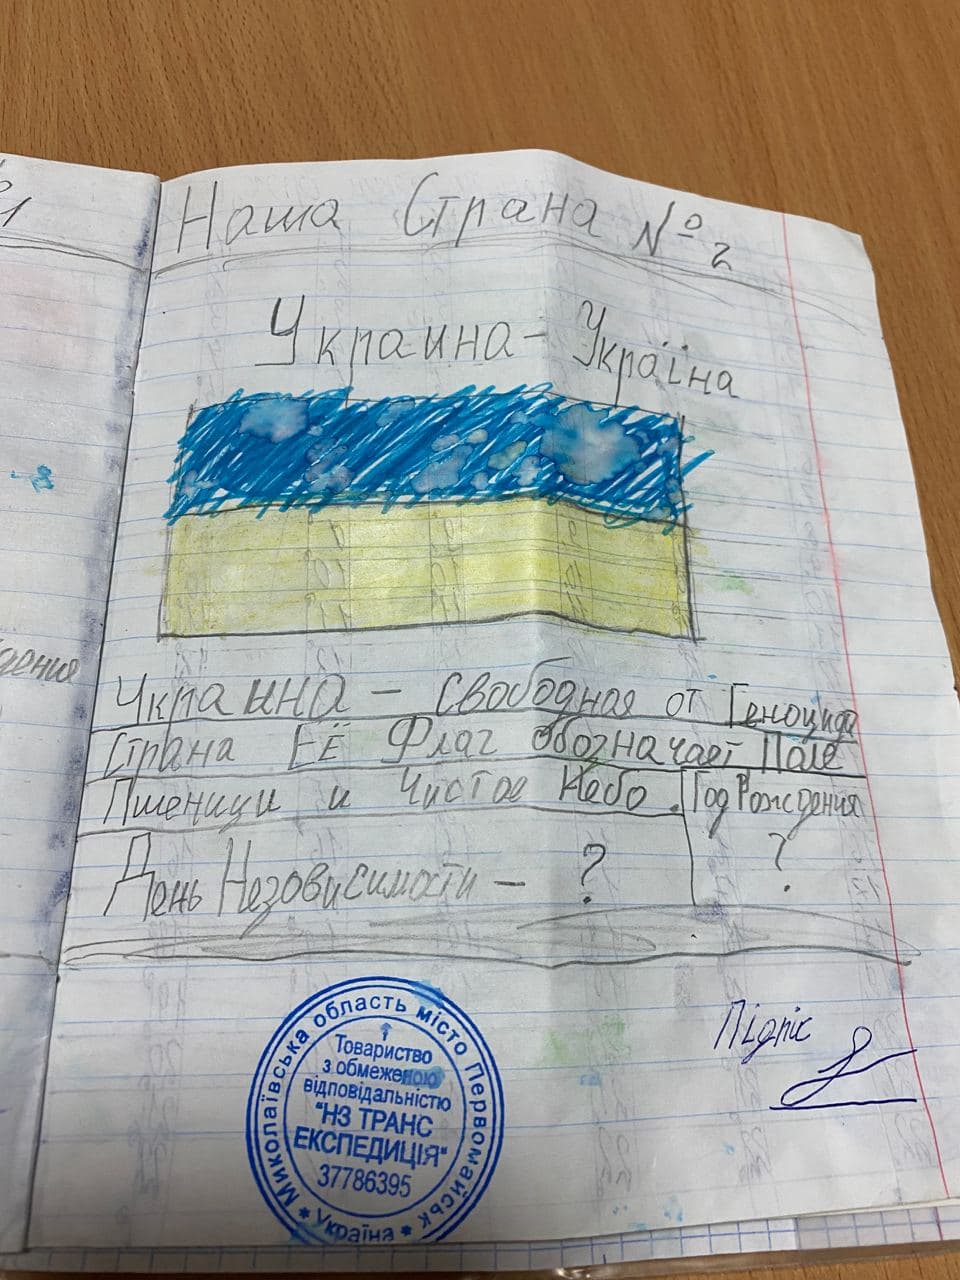 1
дения
Наша Страна № 2
Украина - Україна
Украина - свободная от Геноцида
Страна Её Флаг обозначает Поле
Пшеници и Чистое Небо.
Год Рождения
?
День Незовисимости - ?
Підпіс
Миколаївська область місто Первомайськ
* Україна *
Товариство
з обмеженою
відповідальністю
"НЗ ТРАНС
ЕКСПЕДИЦІЯ"
37786395